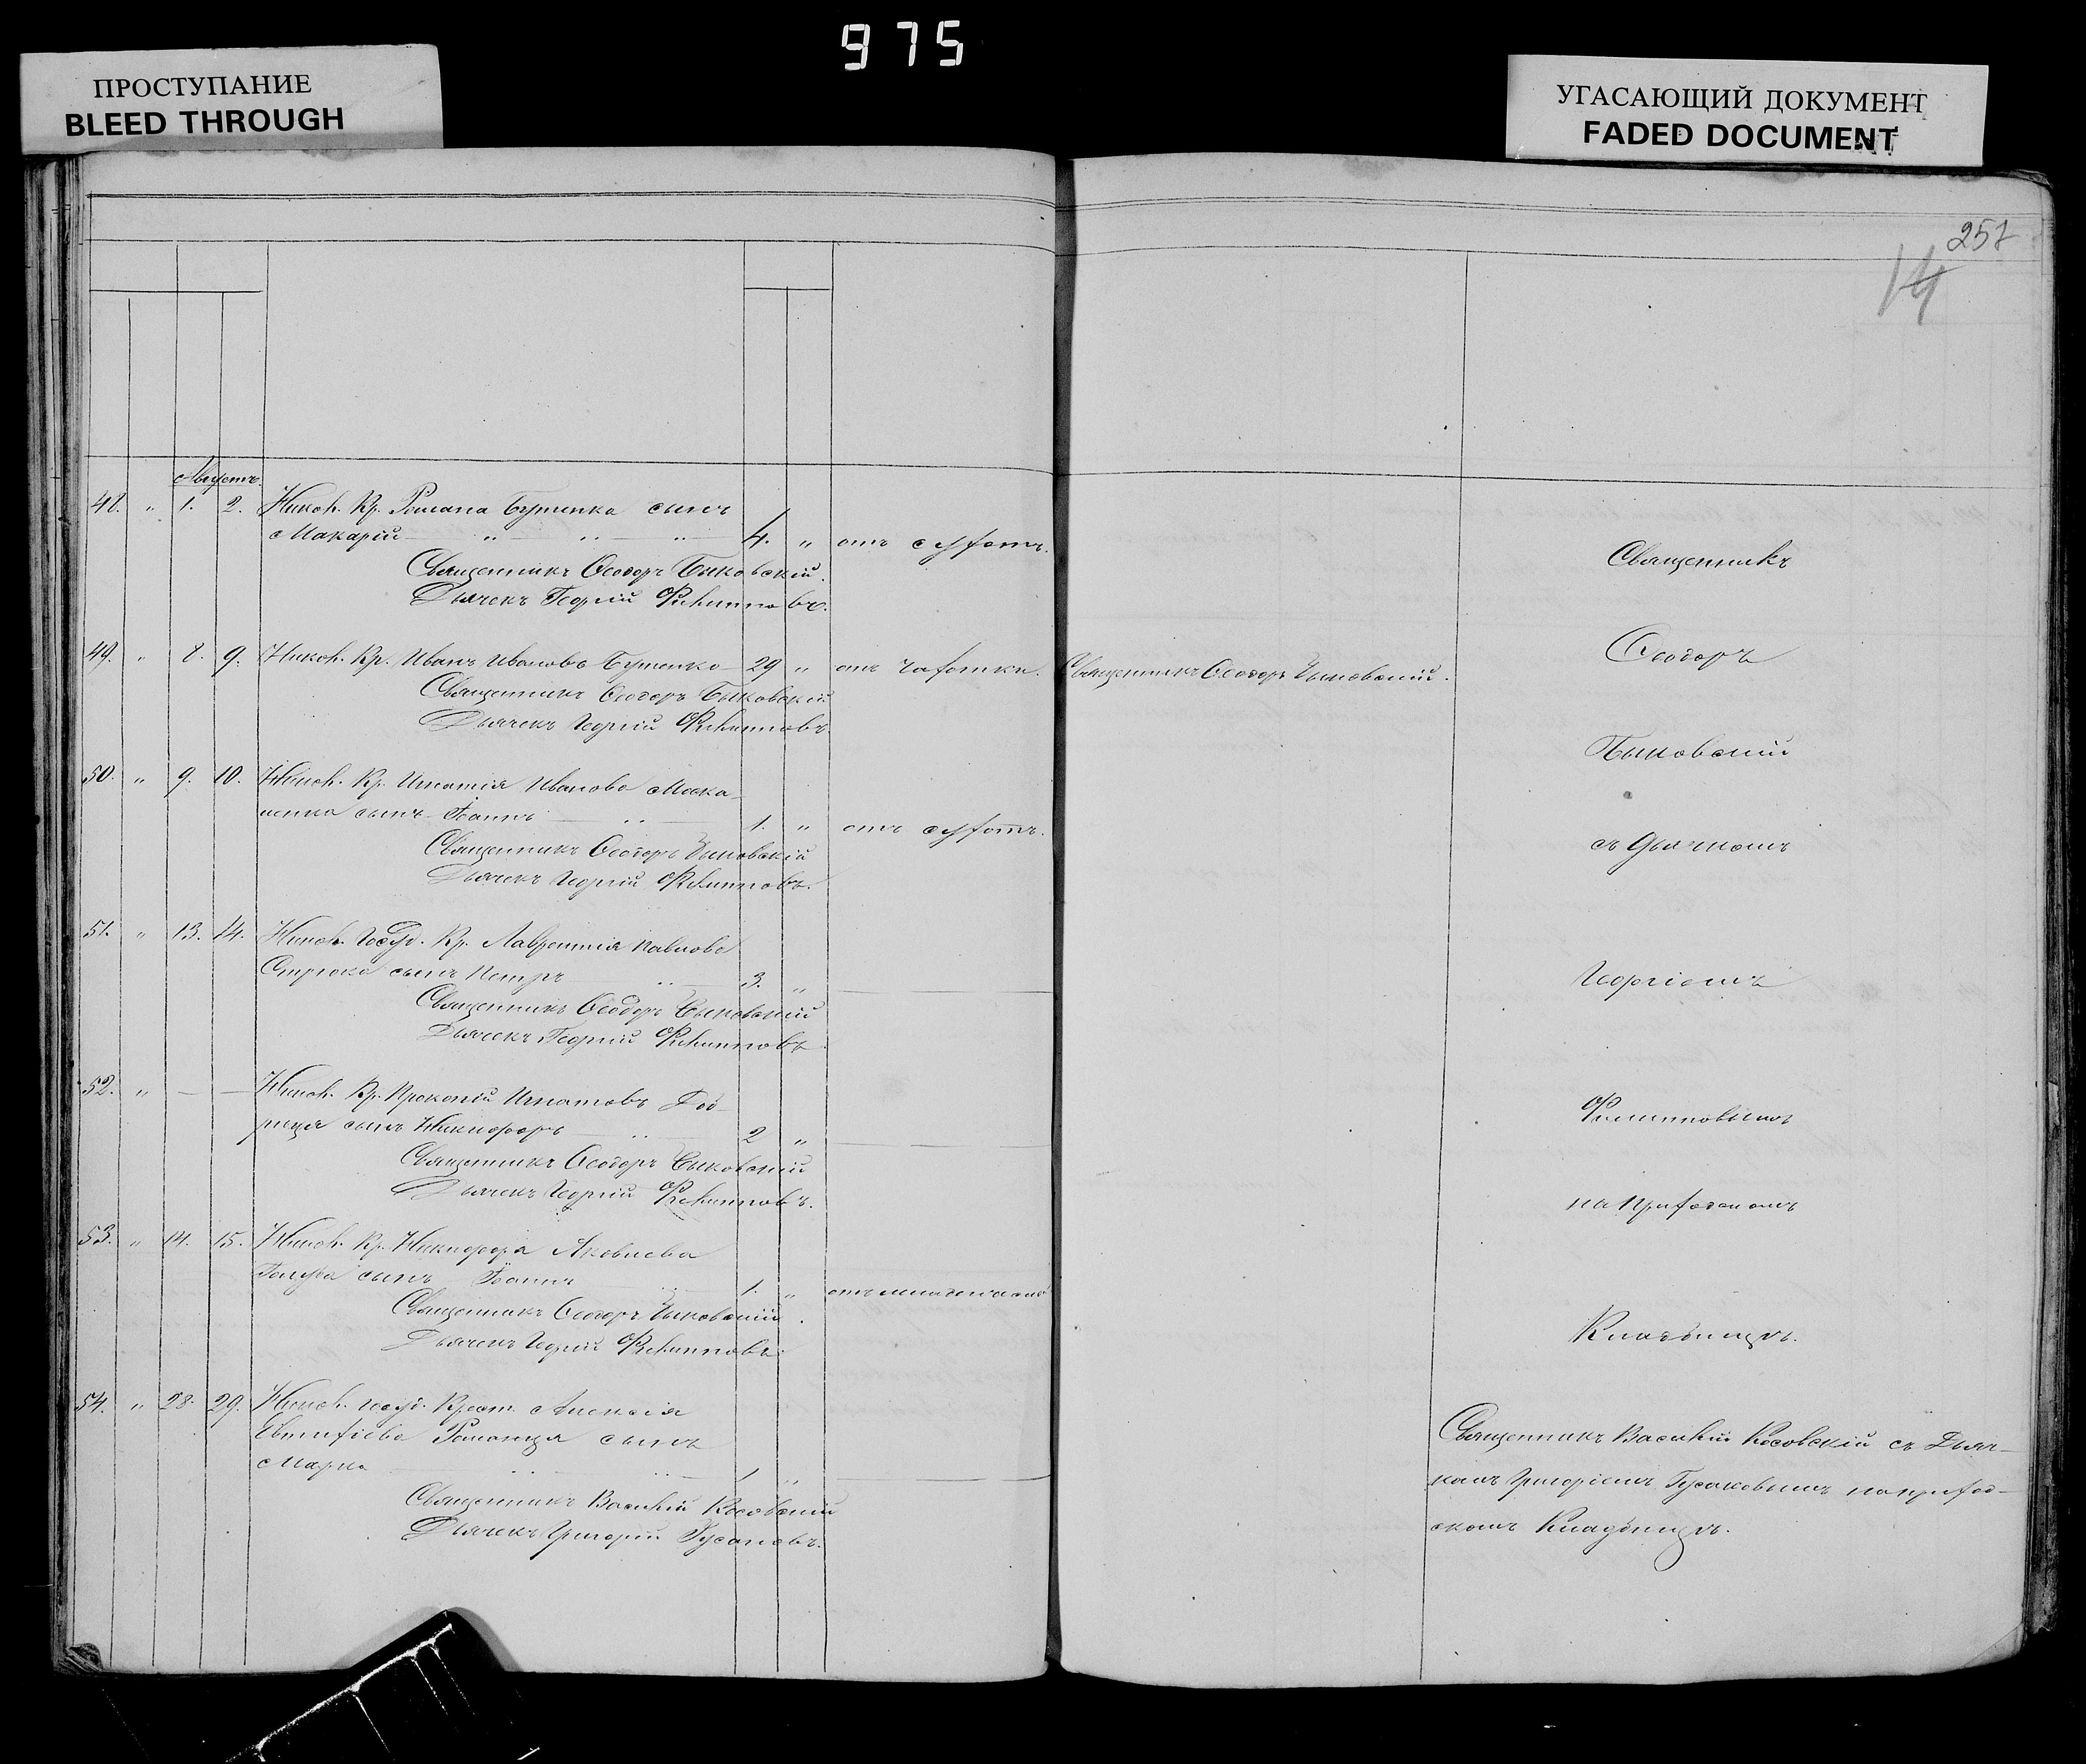 975
ПРОСТУПАНИЕ
BLEED THROUGH
УГАСАЮЩИЙ ДОКУМЕНТ
FADED DOCUMENT
257
14
Августъ.
48. " 1. 2. Никол. Кр. Романа Бутенка сынъ
Макарій " " " 4. " отъ сухотъ.
Священникъ Ѳеодоръ Быковскій.
Дьячекъ Георгій Филипповъ.
49. " 8. 9. Никол. Кр. Иванъ Ивановъ Бутенко 29 " отъ чахотки. Священникъ Ѳеодоръ Быковскій.
Священникъ Ѳеодоръ Быковскій
Дьячекъ Георгій Филипповъ.
50. " 9. 10. Никол. Кр. Игнатія Иванова Моска-
ленка сынъ Іоаннъ " 1. " отъ сухотъ.
Священникъ Ѳеодоръ Быковскій
Дьячекъ Георгій Филипповъ.
51. " 13. 14. Никол. Госуд. Кр. Лаврентія Павлова
сынъ Петръ " 3. "
Священникъ Ѳеодоръ Быковскій
Дьячекъ Георгій Филипповъ
52. " — — Никол. Кр. Прокопій Игнатовъ
сынъ Никифоръ " 2 "
Священникъ Ѳеодоръ Быковскій
Дьячекъ Георгій Филипповъ.
53. " 14. 15. Никол. Кр. Никифора Яковлева
сынъ Іоаннъ " 1. " отъ младенческой
Священникъ Ѳеодоръ Быковскій.
Дьячекъ Георгій Филипповъ
54. " 28. 29. Никол. госуд. Крест. Алексія
Евтихіева сынъ
Марко " " 1 "
Священникъ Василій Косовскій
Дьячекъ Григорій Гусаковъ.
Священникъ
Ѳеодоръ
Быковскій
съ Дьячкомъ
Георгіемъ
Филипповымъ
на Приходскомъ
Кладбищѣ.
Священникъ Василій Косовскій съ Дьяч-
комъ Григоріемъ Гусаковымъ на приход-
скомъ Кладбищѣ.